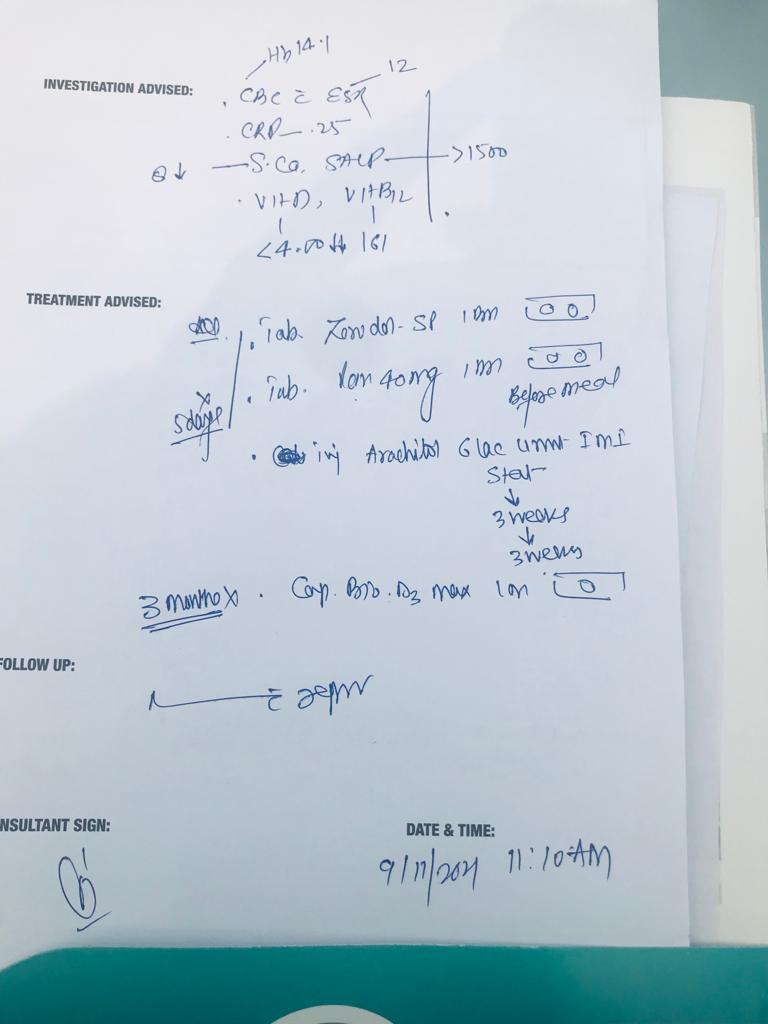 Hb 14.1
12
INVESTIGATION ADVISED: . CBC c̄ ESR
. CRP — .25
↓ — S. Ca, SALP — >1500
. Vit D, Vit B12
<4.00 161
TREATMENT ADVISED:
. Tab. Zerodol-SP 1 BM
. Tab. Pan 40mg 1 BM
Before meal
5 days x
. inj Arachitol 6 lac unit IMI
Stat
↓
3 weeks
↓
3 weeks
3 months x . Cap. Bio. D3 max 1 on
FOLLOW UP:
c̄ repor
NSULTANT SIGN:
DATE & TIME:
9/11/2021 11:10 AM